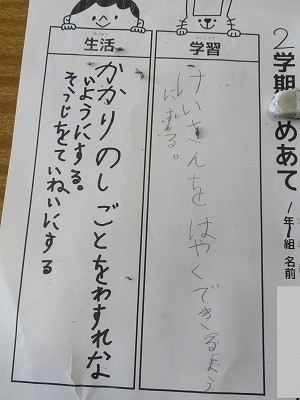 2学期 めあて
1年1組 名前
学習
けいさんをはやくできるよう
にする。
生活
かかりのしごとをわすれな
いようにする。
そうじをていねいにする